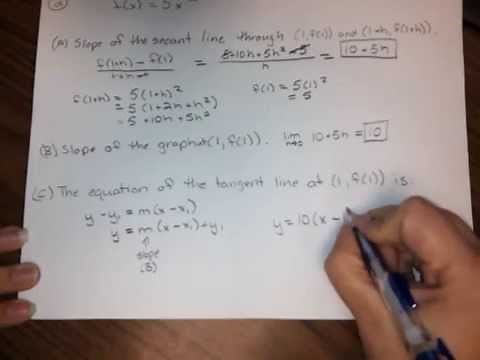 a f(x) = 5x²
(A) Slope of the secant line through (1, f(1)) and (1+h, f(1+h)).
f(1+h) - f(1) / 1+h-1 = 5+10h+5h²-5 / h = 10+5h
f(1+h) = 5(1+h)² f(1) = 5(1)²
= 5(1+2h+h²) = 5
= 5+10h+5h²
(B) Slope of the graph at (1, f(1)). lim h→0 10+5h = 10
(C) The equation of the tangent line at (1, f(1)) is:
y - y₁ = m(x - x₁)
y = m(x - x₁) + y₁ y = 10(x -
↑
slope
(B)